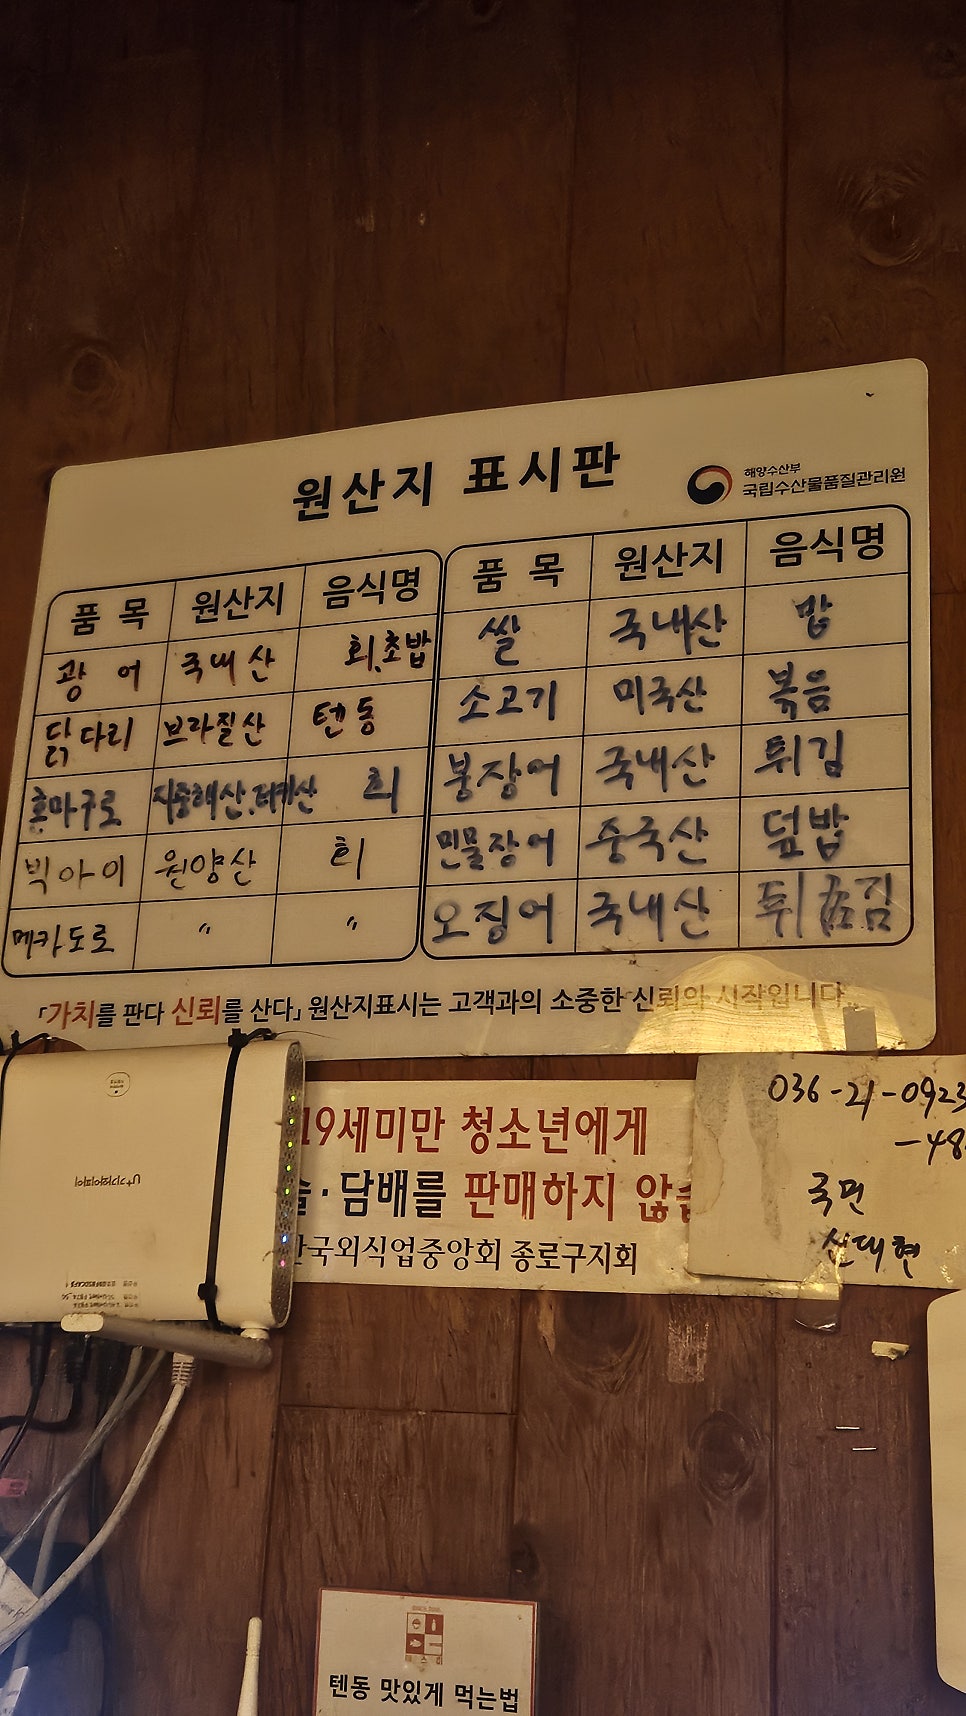 원산지 표시판
해양수산부
국립수산물품질관리원
품 목 원산지 음식명
광 어 국내산 회,초밥
닭다리 브라질산 텐동
혼마구로 지중해산, 회
빅아이 원양산 회
메카도로 〃 〃
품 목 원산지 음식명
쌀 국내산 밥
소고기 미국산 볶음
붕장어 국내산 튀김
민물장어 중국산 덮밥
오징어 국내산 튀김
「가치를 판다 신뢰를 산다」 원산지표시는 고객과의 소중한 신뢰의 시작입니다.
U+기가와이파이
19세미만 청소년에게
술·담배를 판매하지 않습
한국외식업중앙회 종로구지회
036-21-0923
-48
국민
신대현
텐동 맛있게 먹는법